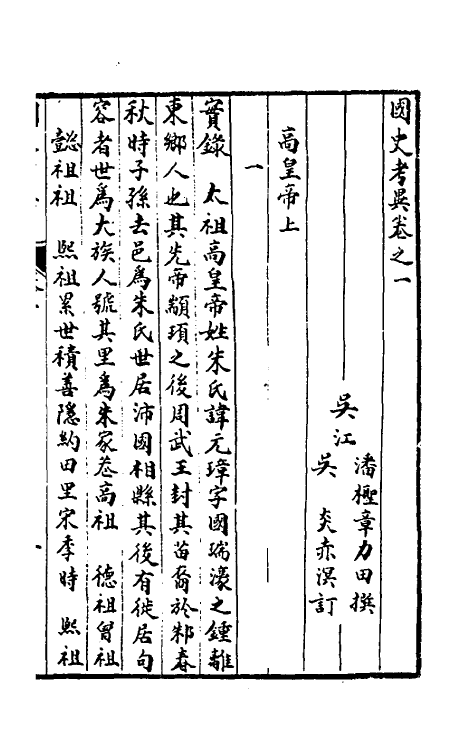 國史考異卷之一
吳江
潘檉章力田撰
吳 炎赤溟訂
高皇帝上
一
實錄 太祖高皇帝姓朱氏諱元璋字國瑞濠之鍾離
東鄉人也其先帝顓頊之後周武王封其苗裔於邾春
秋時子孫去邑爲朱氏世居沛國相縣其後有徙居句
容者世爲大族人號其里爲朱家巷高祖 德祖曾祖
懿祖祖 熙祖累世積善隱約田里宋季時 熙祖